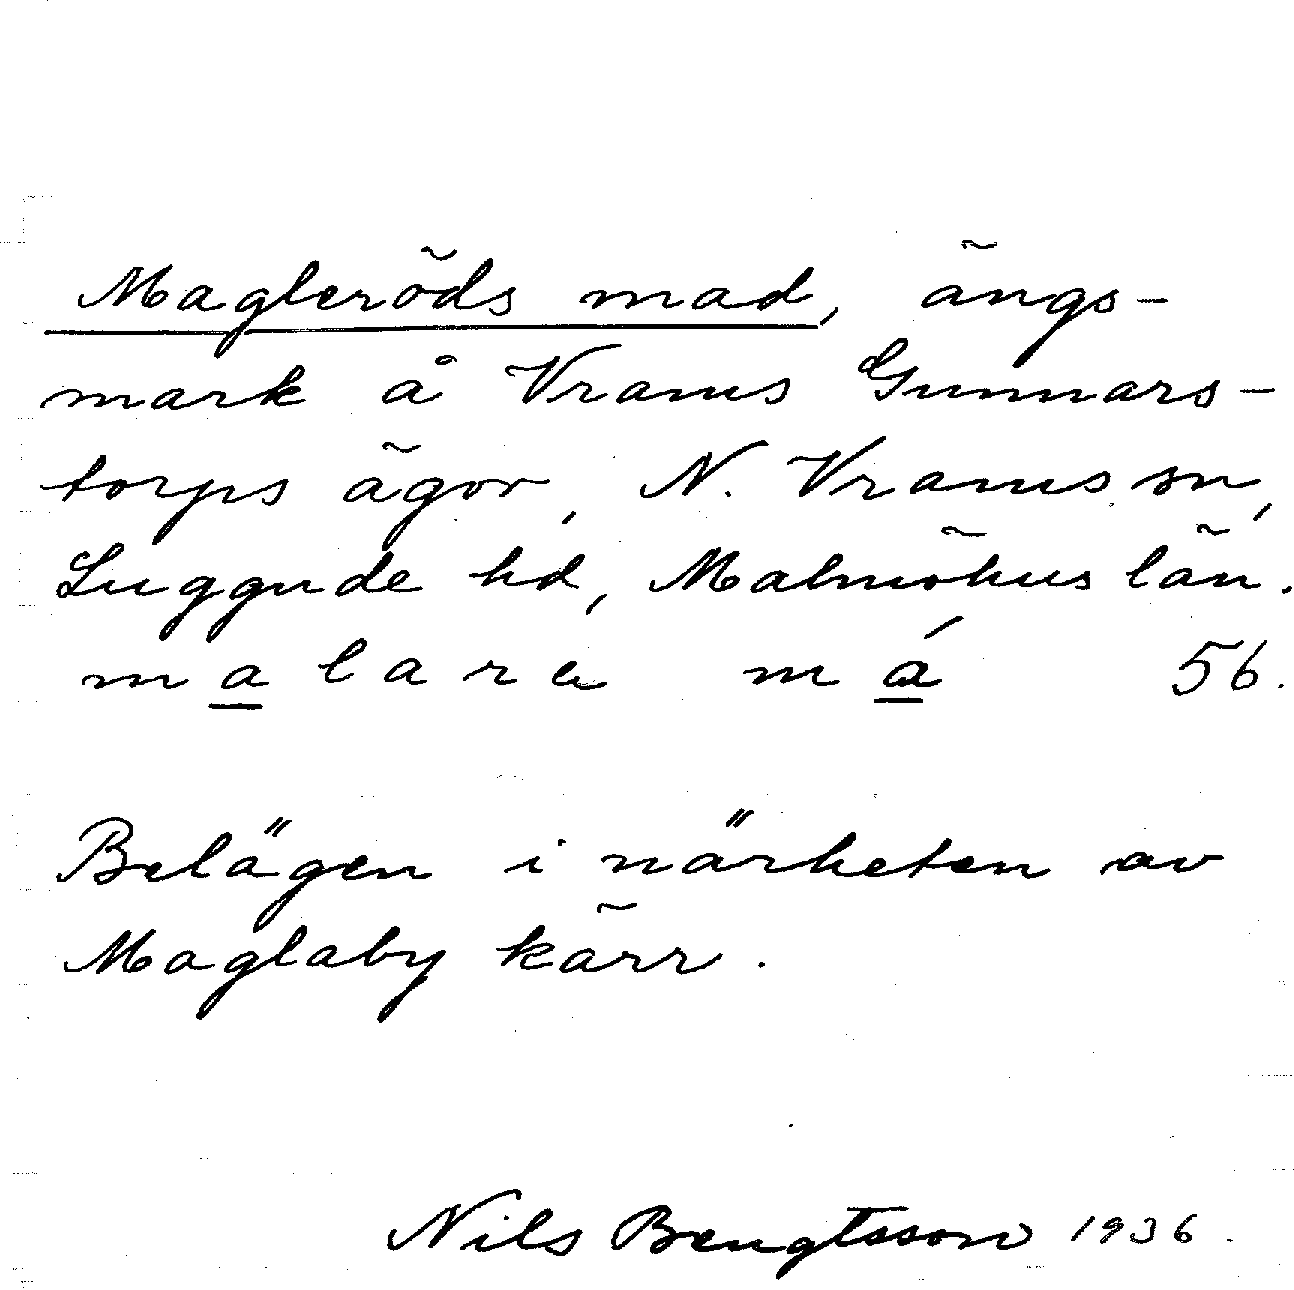 Magleröds mad, ängs-
mark å Vrams Gunnars-
torps ägor, N. Vrams sn,
Luggude hd, Malmöhus län.
malara má 56.
Belägen i närheten av
Maglaby kärr.
Nils Bengtsson 1936.